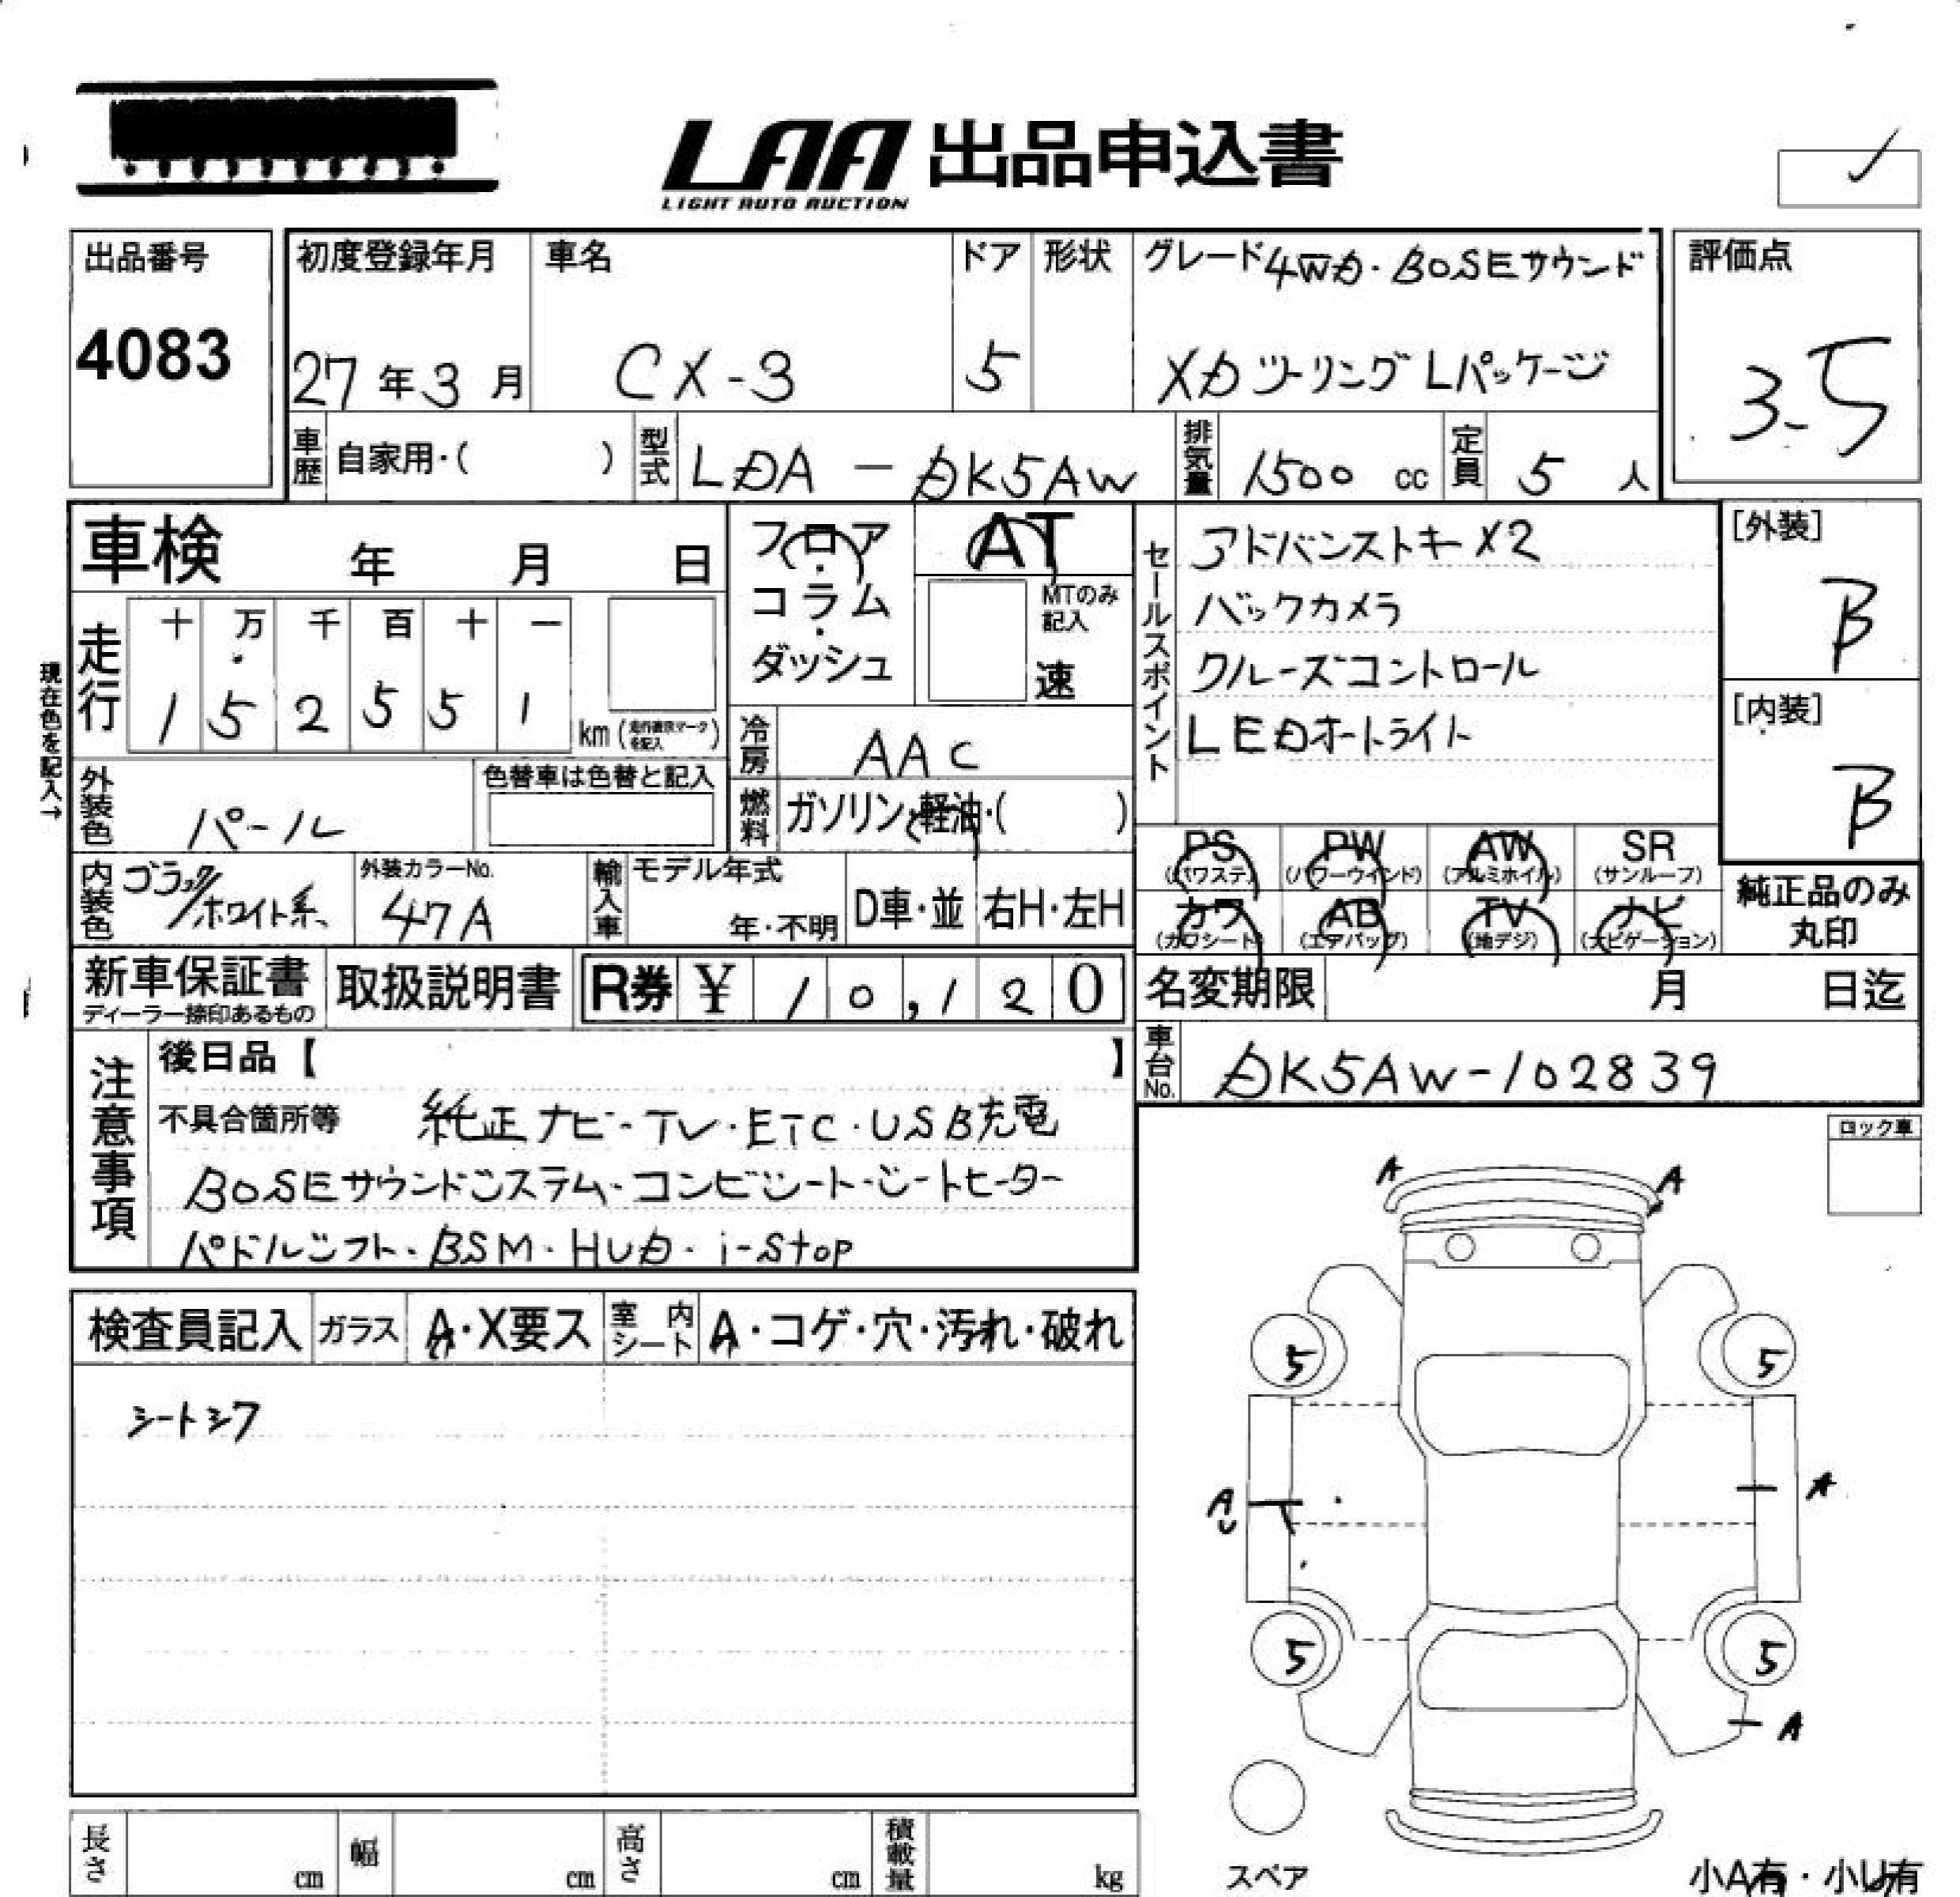 LAA 出品申込書
LIGHT AUTO AUCTION
出品番号
4083
初度登録年月
27年3月
車名
CX-3
ドア
5
形状
グレード 4WD・BOSEサウンド
XDツーリング Lパッケージ
評価点
3.5
車歴 自家用・( )
型式 LDA-DK5AW
排気量 1500 cc
定員 5 人
車検 年 月 日
フロア・コラム・ダッシュ
AT
MTのみ記入
速
セールスポイント
アドバンストキーX2
バックカメラ
クルーズコントロール
LEDオートライト
[外装]
B
[内装]
B
現在色を記入→
走行
十 万 千 百 十 一
1 5 2 5 5 1 km
冷房 AAC
外装色 パール
色替車は色替と記入
燃料 ガソリン・軽油・( )
内装色 ブラック/ホワイト系
外装カラーNo.
47A
輸入車
モデル年式
年・不明
D車・並
右H・左H
PS (パワステ)
PW (パワーウインド)
AW (アルミホイル)
SR (サンルーフ)
カワ (カワシート)
AB (エアバッグ)
TV (地デジ)
ナビ (ナビゲーション)
純正品のみ
丸印
新車保証書
ディーラー捺印あるもの
取扱説明書
R券 ¥ 10,120
名変期限 月 日迄
車台No. DK5AW-102839
注意事項
後日品【 】
不具合箇所等 純正ナビ・TV・ETC・USB充電
BOSEサウンドシステム・コンビシート・シートヒーター
パドルシフト・BSM・HUD・i-stop
ロック車
検査員記入
ガラス A・X要ス
室内シート A・コゲ・穴・汚れ・破れ
シートシワ
A A
5 5
A
U
A
5 5
A
スペア
長さ cm
幅 cm
高さ cm
積載量 kg
小A有・小U有